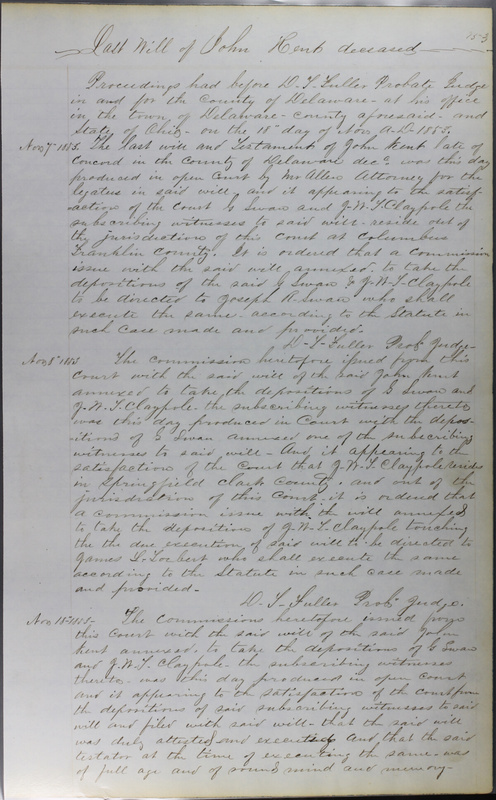 153
Last Will of John Kent deceased
Proceedings had before D. T. Fuller Probate Judge
in and for the County of Delaware - at his office
in the town of Delaware - County aforesaid - and
State of Ohio - on the 18th day of Nov. A.D. 1855.
Nov. 7th 1855. The last will and Testament of John Kent late of
Concord in the County of Delaware decd. was this day
produced in open Court by Mr Allen Attorney for the
legatees in said will, and it appearing to the satisf-
action of the Court G Swan and J. W. T. Claypole the
subscribing witnesses to said will - reside out of
the jurisdiction of this Court at Columbus
Franklin County. It is ordered that a commission
issue with the said will annexed to take the
depositions of the said G Swan & J. W. T. Claypole
to be directed to Joseph R. Swan who shall
execute the same according to the Statute in
such case made and provided.
D. T. Fuller Prob. Judge
Nov. 8th 1855 The commission heretofore issued from this
Court with the said will of the said John Kent
annexed to take the depositions of G Swan and
J. W. T. Claypole the subscribing witnesses thereto
was this day produced in Court with the depos-
itions of G Swan annexed one of the subscribing
witnesses to said will - And it appearing to the
satisfaction of the Court that J. W. T. Claypole resides
in Springfield Clark County, and out of the
jurisdiction of this Court - it is ordered that
a commission issue with the will annexed
to take the depositions of J. W. T. Claypole touching
the the due execution of said will to be directed to
James L. Torbert who shall execute the same
according to the Statute in such case made
and provided -
D. T. Fuller Prob. Judge.
Nov. 18th 1855 - The Commissions heretofore issued from
this Court with the said will of the said John
Kent annexed - to take the depositions of G Swan
and J. W. T. Claypole - the subscribing witnesses
thereto - was this day produced in open Court
and it appearing to the satisfaction of the Court from
the depositions of said subscribing witnesses to said
will and filed with said will - that the said will
was duly attested and executed And that the said
testator at the time of executing the same - was
of full age and of sound mind and memory -